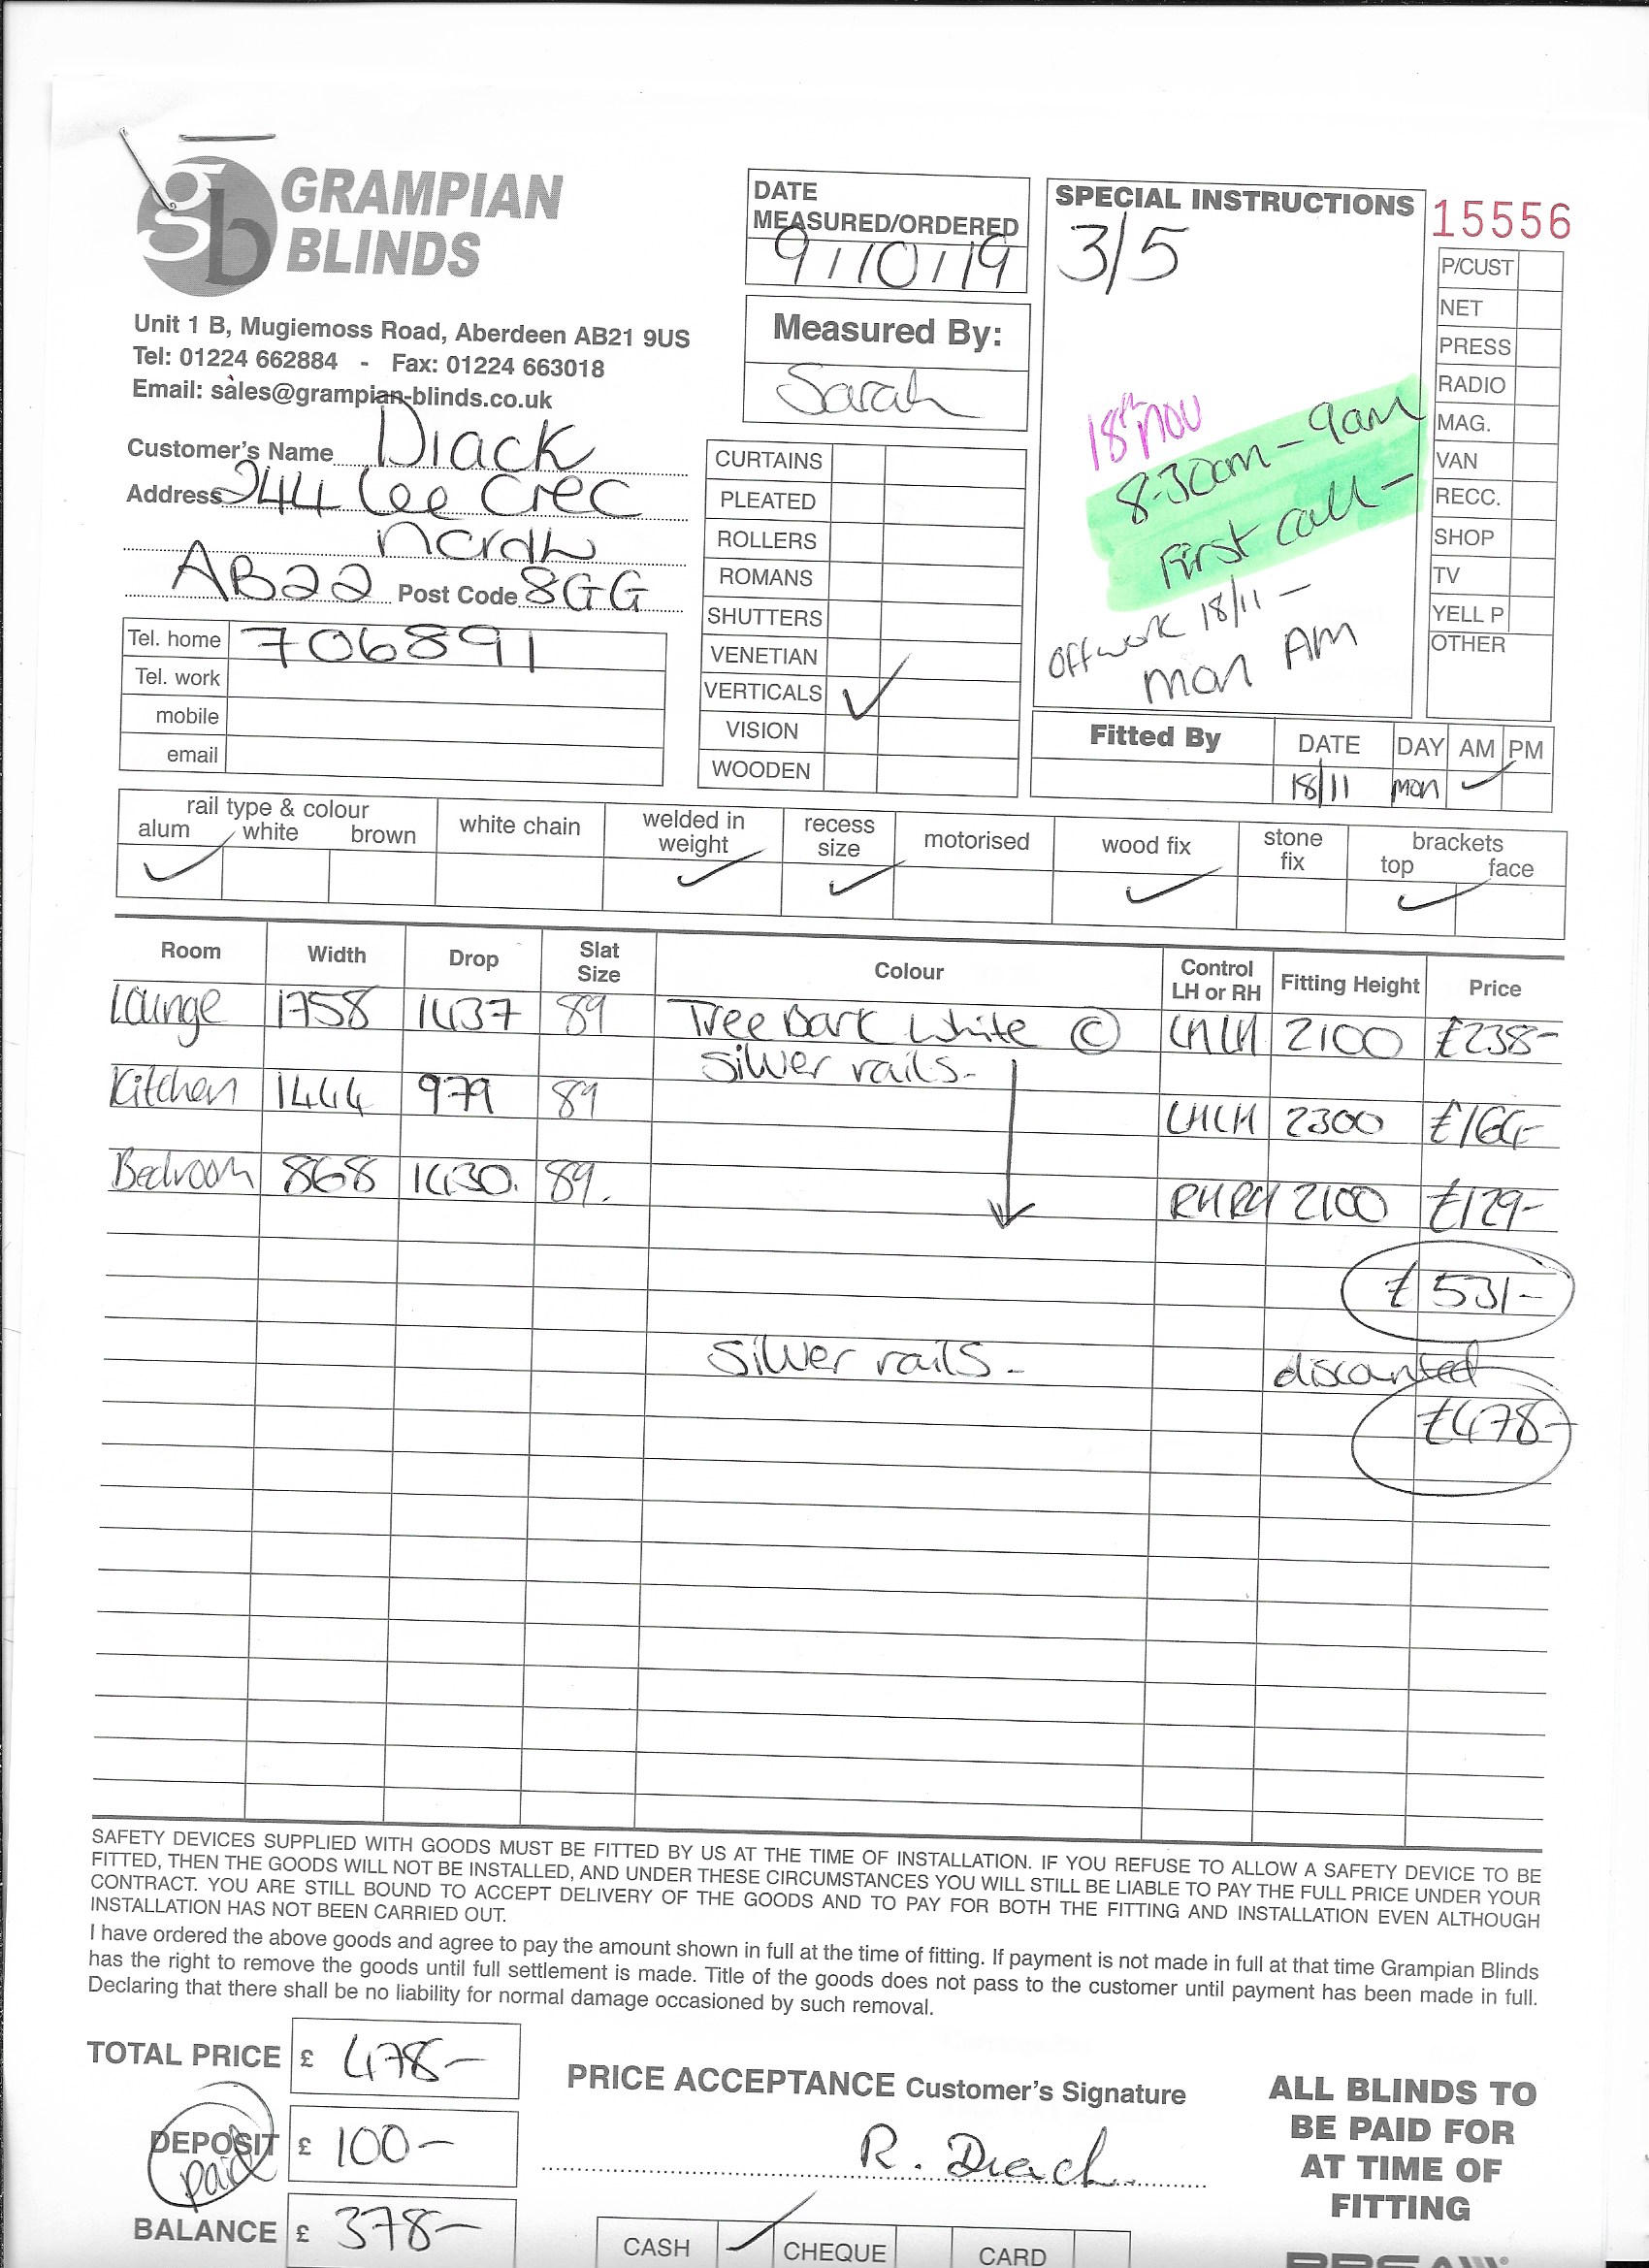 GRAMPIAN
BLINDS
Unit 1 B, Mugiemoss Road, Aberdeen AB21 9US
Tel: 01224 662884 - Fax: 01224 663018
Email: sales@grampian-blinds.co.uk
Customer's Name Diack
Address 244 Lee Cres
North
AB22 Post Code 8GG
Tel. home 706891
Tel. work
mobile
email
DATE
MEASURED/ORDERED
9/10/19
Measured By:
Sarah
CURTAINS
PLEATED
ROLLERS
ROMANS
SHUTTERS
VENETIAN
VERTICALS ✓
VISION
WOODEN
SPECIAL INSTRUCTIONS
3/5
18th NOV
8-30am - 9am
First call -
Off work 18/11 -
mon AM
15556
P/CUST
NET
PRESS
RADIO
MAG.
VAN
RECC.
SHOP
TV
YELL P
OTHER
Fitted By DATE DAY AM PM
18/11 mon ✓
rail type & colour
alum white brown
white chain
welded in
weight
recess
size
motorised
wood fix
stone
fix
brackets
top face
✓ ✓ ✓ ✓ ✓
Room Width Drop Slat Size Colour Control LH or RH Fitting Height Price
Lounge 1758 1437 89 Tree Bark White © LHLH 2100 £238-
Silver rails-
Kitchen 1444 979 89 LHLH 2300 £164-
Bedroom 868 1430. 89. RHRH 2100 £129-
£531-
Silver rails- discounted
£478-
SAFETY DEVICES SUPPLIED WITH GOODS MUST BE FITTED BY US AT THE TIME OF INSTALLATION. IF YOU REFUSE TO ALLOW A SAFETY DEVICE TO BE
FITTED, THEN THE GOODS WILL NOT BE INSTALLED, AND UNDER THESE CIRCUMSTANCES YOU WILL STILL BE LIABLE TO PAY THE FULL PRICE UNDER YOUR
CONTRACT. YOU ARE STILL BOUND TO ACCEPT DELIVERY OF THE GOODS AND TO PAY FOR BOTH THE FITTING AND INSTALLATION EVEN ALTHOUGH
INSTALLATION HAS NOT BEEN CARRIED OUT.
I have ordered the above goods and agree to pay the amount shown in full at the time of fitting. If payment is not made in full at that time Grampian Blinds
has the right to remove the goods until full settlement is made. Title of the goods does not pass to the customer until payment has been made in full.
Declaring that there shall be no liability for normal damage occasioned by such removal.
TOTAL PRICE £ 478-
DEPOSIT £ 100-
paid
BALANCE £ 378-
PRICE ACCEPTANCE Customer's Signature
R. Diack
CASH ✓ CHEQUE CARD
ALL BLINDS TO
BE PAID FOR
AT TIME OF
FITTING